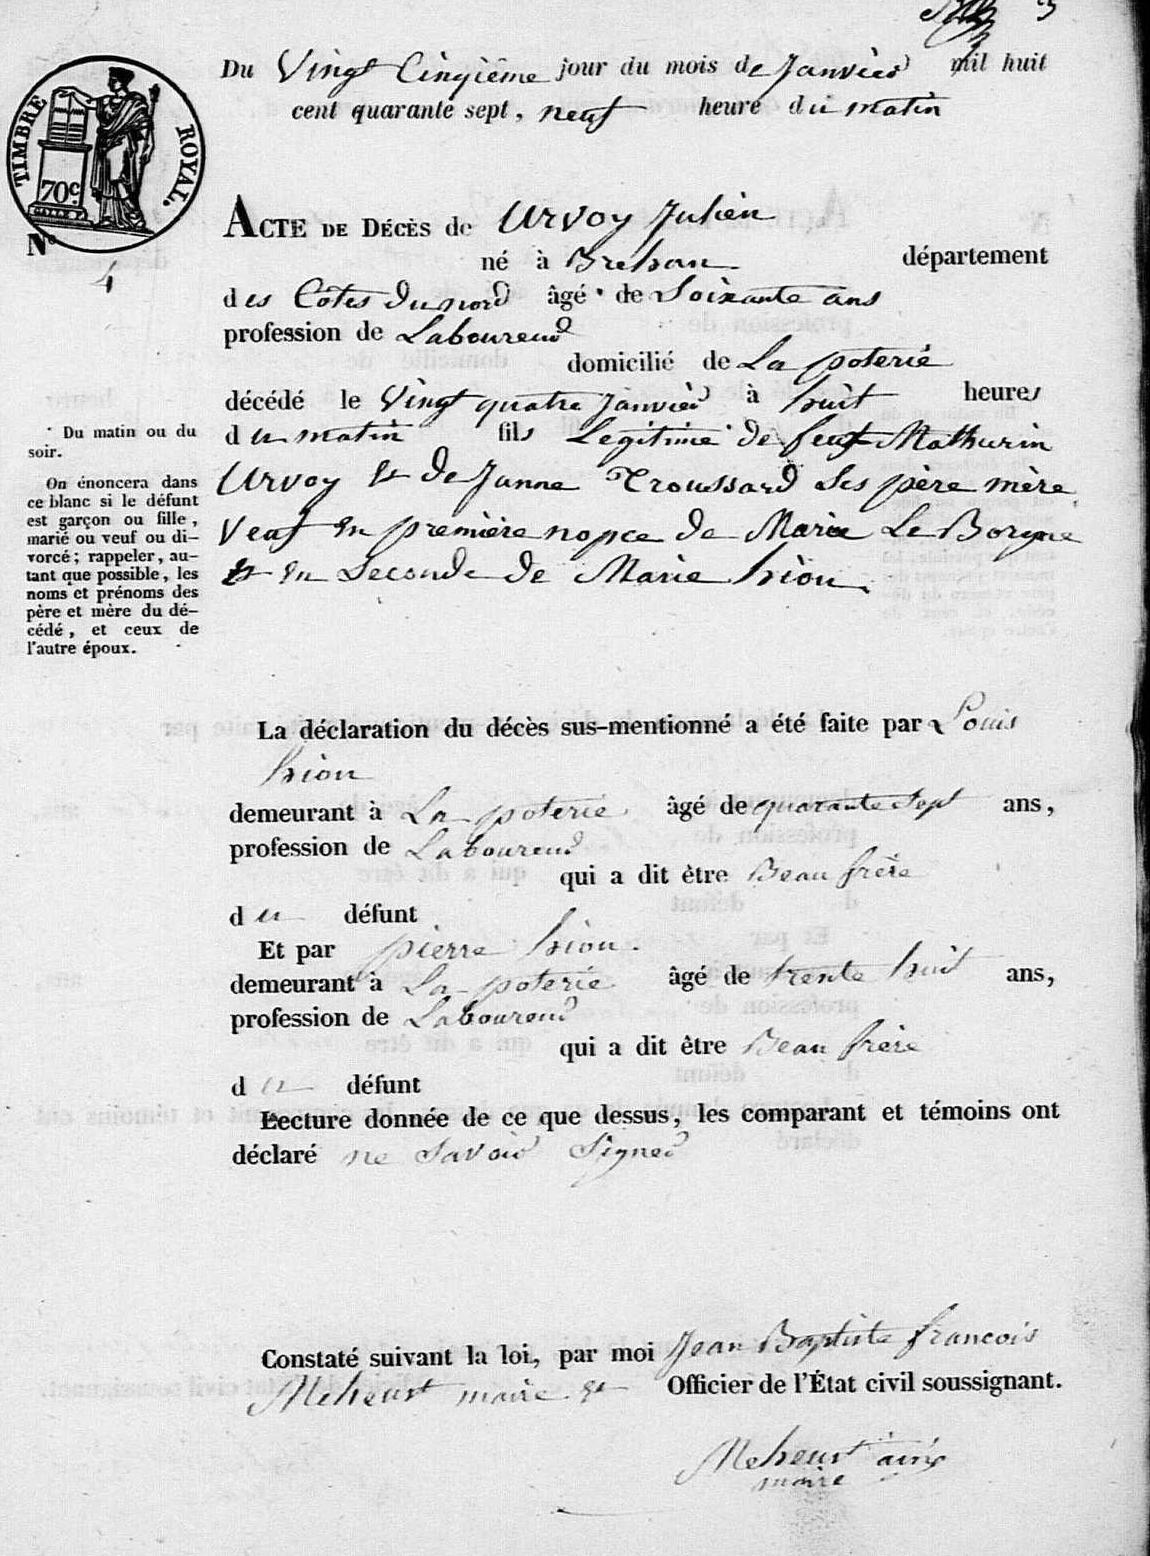 3
TIMBRE ROYAL.
70c
Du Vingt Cinqième jour du mois de Janvier mil huit
cent quarante sept, neuf heure du matin
N°
4
ACTE DE DÉCÈS de Urvoy Julien
né à Brehan département
des Côtes du nord âgé de Soixante ans
profession de Laboureur
domicilié de La poterie
décédé le Vingt quatre Janvier à huit heures
du matin fils Legitime de feu Mathurin
Urvoy et de Janne Troussard Ses père mère
Veuf en première nopce de Marie Le Borgne
et en Seconde de Marie hion.
Du matin ou du
soir.
On énoncera dans
ce blanc si le défunt
est garçon ou fille,
marié ou veuf ou di-
vorcé; rappeler, au-
tant que possible, les
noms et prénoms des
père et mère du dé-
cédé, et ceux de
l'autre époux.
La déclaration du décès sus-mentionné a été faite par Louis
hion
demeurant à La poterie âgé de quarante Sept ans,
profession de Laboureur
qui a dit être Beau frère
du défunt
Et par pierre hion.
demeurant à La poterie âgé de trente huit ans,
profession de Laboureur
qui a dit être Beau frère
du défunt
Lecture donnée de ce que dessus, les comparant et témoins ont
déclaré ne Savoir Signer
Constaté suivant la loi, par moi Jean Baptiste francois
Meheust maire et Officier de l'État civil soussignant.
Meheust ainé
maire